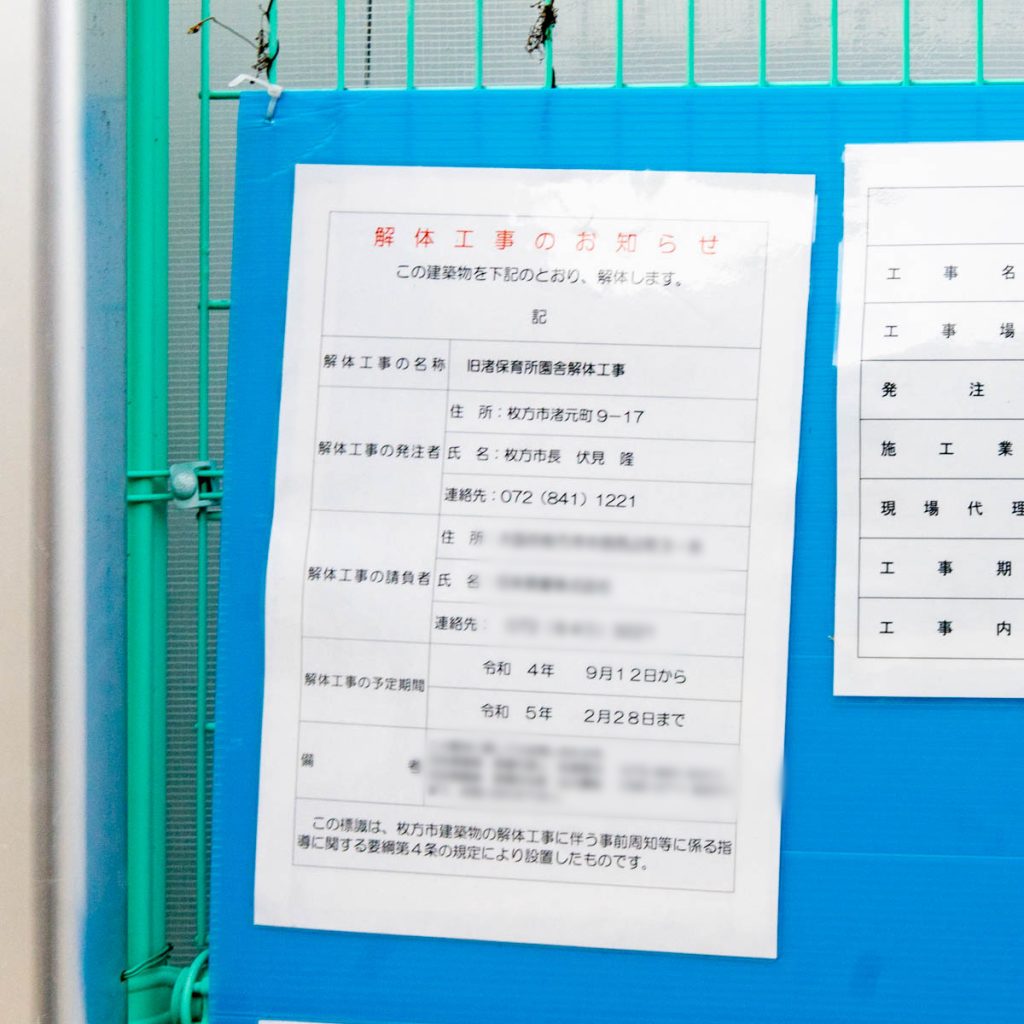 解体工事のお知らせ
この建築物を下記のとおり、解体します。
記
解体工事の名称 旧渚保育所園舎解体工事
解体工事の発注者
住 所：枚方市渚元町９－17
氏 名：枚方市長 伏見 隆
連絡先：072（841）1221
解体工事の請負者
住 所
氏 名
連絡先：
解体工事の予定期間
令和 4年 9月12日から
令和 5年 2月28日まで
備 考
この標識は、枚方市建築物の解体工事に伴う事前周知等に係る指
導に関する要綱第４条の規定により設置したものです。
工 事 名
工 事 場
発 注
施 工 業
現 場 代 理
工 事 期
工 事 内